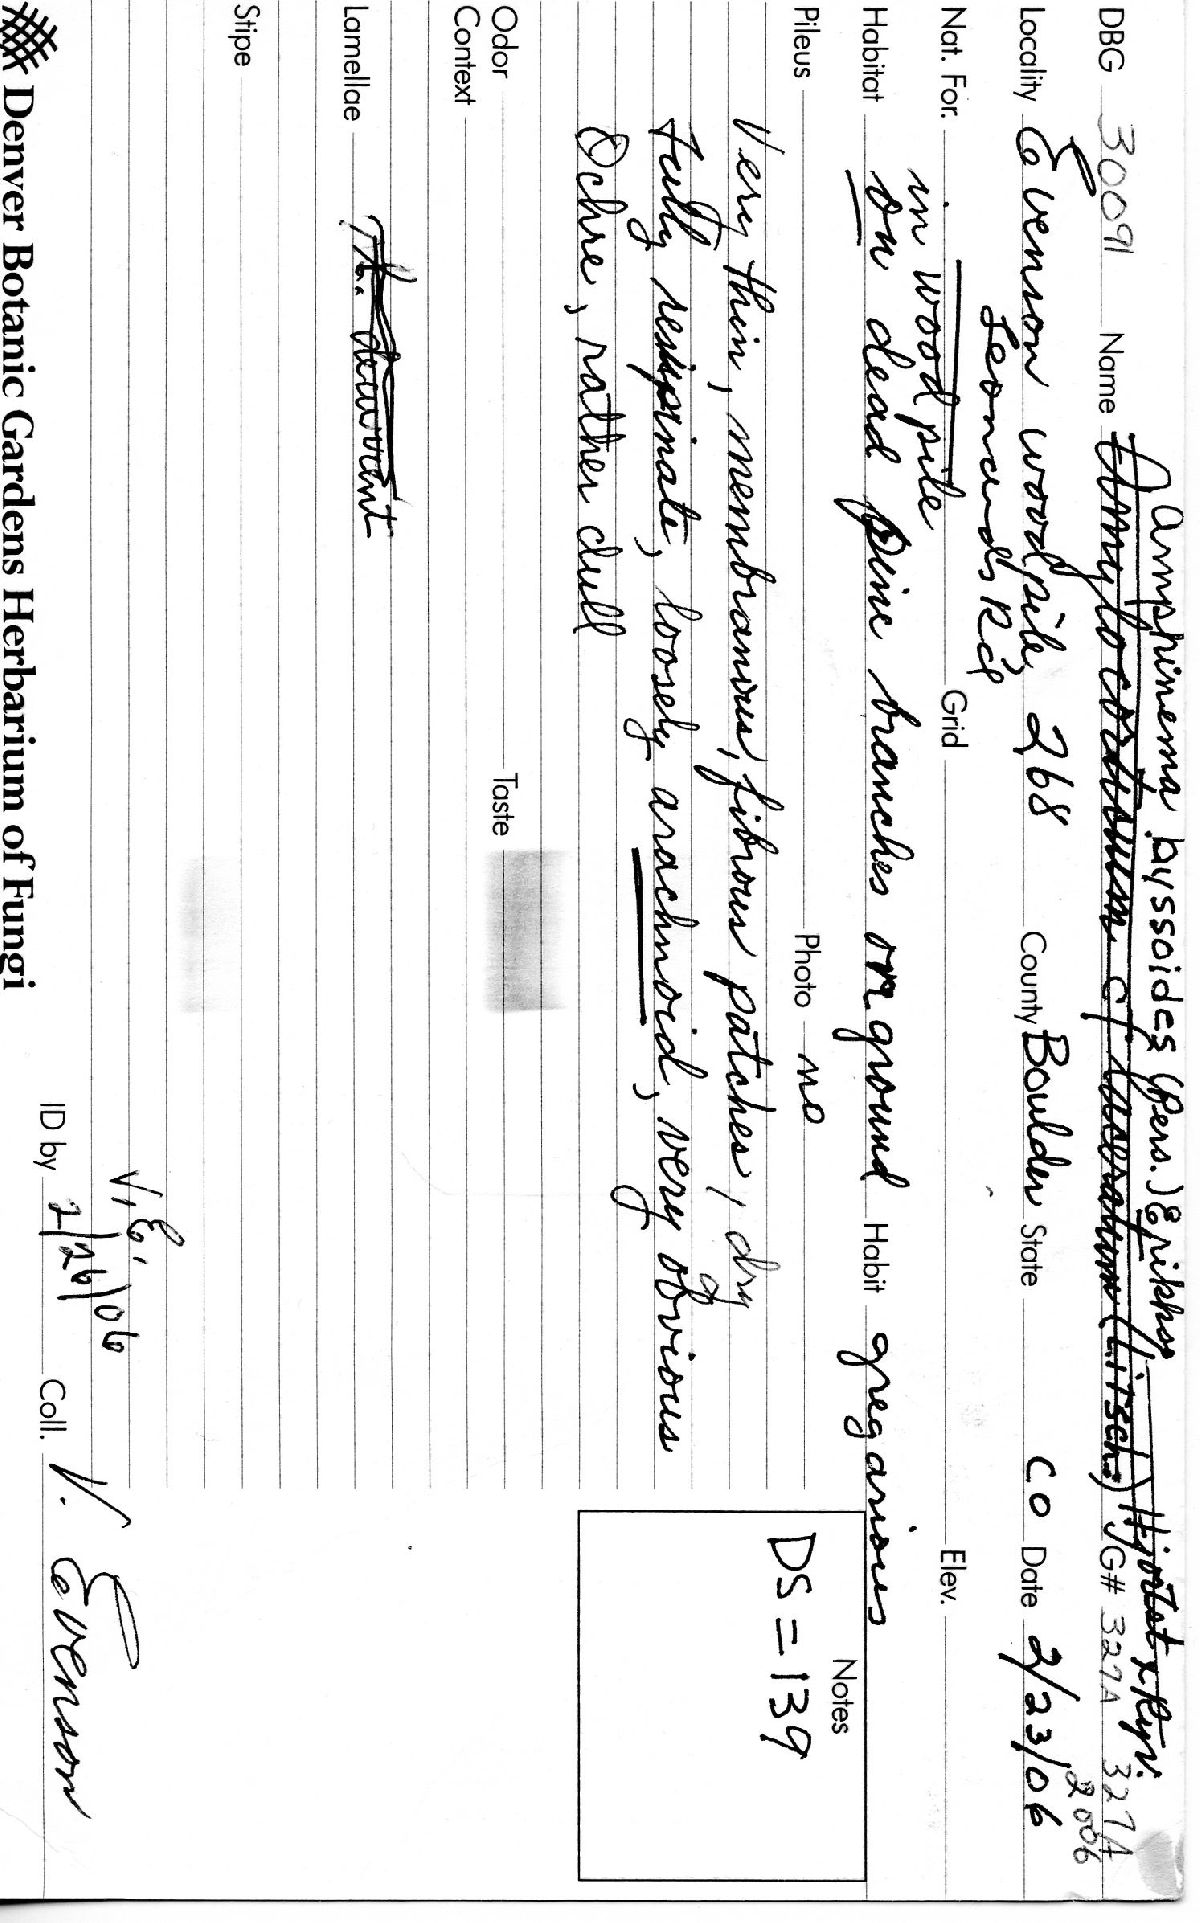 Amphinema byssoides (Pers.) Erikkss
DBG 30091 Name Amylocorticium cf laceratum (Litsch.) Hjortst & Ryv. JG# 327A 327A
2006
Locality Evenson woodpile, 268 County Boulder State CO Date 2/23/06
Leonards Rd
Nat. For. Grid Elev.
in woodpile
Habitat on dead pine branches on ground Habit gregarious
Pileus Photo no
Notes
DS = 139
Very thin, membranous, fibrous patches, dry
fully resupinate, loosely arachnoid, very obvious
Ochre, rather dull
Odor Taste
Context
Lamellae
Stipe
V. E.
ID by 2/26/06 Coll. V. Evenson
Denver Botanic Gardens Herbarium of Fungi